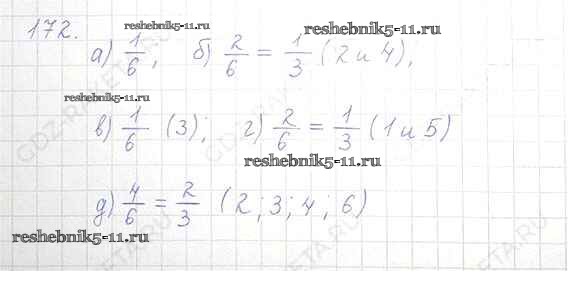 172.
reshebnik5-11.ru reshebnik5-11.ru
а) 1/6, б) 2/6 = 1/3 (2 и 4),
reshebnik5-11.ru
в) 1/6 (3); г) 2/6 = 1/3 (1 и 5)
reshebnik5-11.ru
д) 4/6 = 2/3 (2; 3; 4; 6)
reshebnik5-11.ru